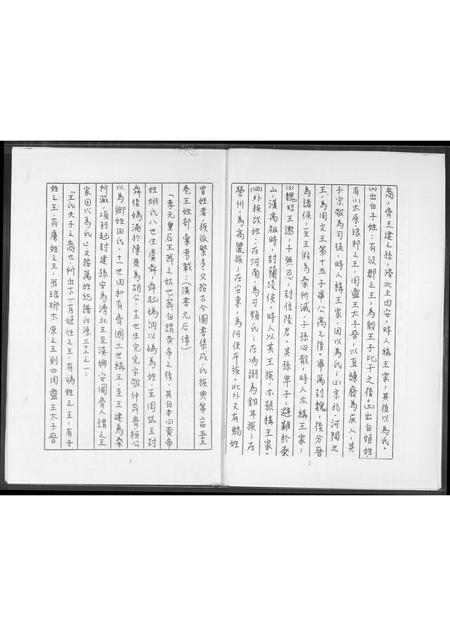 裔,齊王建之孫,濟北王田安,時人稱王家,其後以為氏。
(2)出自子姓:有汲郡之王,為殷王子比干之後。(3)出自姬姓
有(1)太原琅邪之王,周靈王太子晉,以直諫廢為庶人,其
子宗敬為司徒,時人稱王家,因以為氏。(2)京兆河間之
王,為周文王第十五子畢公高之後。畢萬封魏,後分晉
為諸侯,至王假為秦所滅,子孫四散,時人亦稱王家;
(3)魏昭王遫,子無忌,封信陵君。其孫卑子,避難於泰
山,漢高祖時,封蘭陵侯,時人以其王族亦號稱王家。
(四)外族改姓:在河南,為可頻氏;在馮翊為鉗耳族;在
營州,為高麗族;在安東,為阿使布族。此外又有賜姓
冒姓者,族派繁多(又按古今圖書集成氏族典第二百五
卷王姓部彙考載:(漢書元后傳)
「孝元皇后王莽之姑也莽自謂黃帝之後,其自本曰黃帝
姓姚氏八世生虞舜,舜起媯汭以媯為姓至周武王封
舜後媯滿於陳是為胡公十三世生完完字敬仲奔齊桓公
以為卿姓田氏,十一世田和有齊國三世稱王至王建為秦
所滅,項羽起封建孫安為濟北王至漢興安國齊人謂之王
家因以為氏」又按萬姓統譜氏源三十二之一:
「王氏天子之裔也,所出不一有姬姓之王,有媯姓之王,有子
姓之王,有虜姓之王,若琅琊太原之王則曰周靈王太子晉